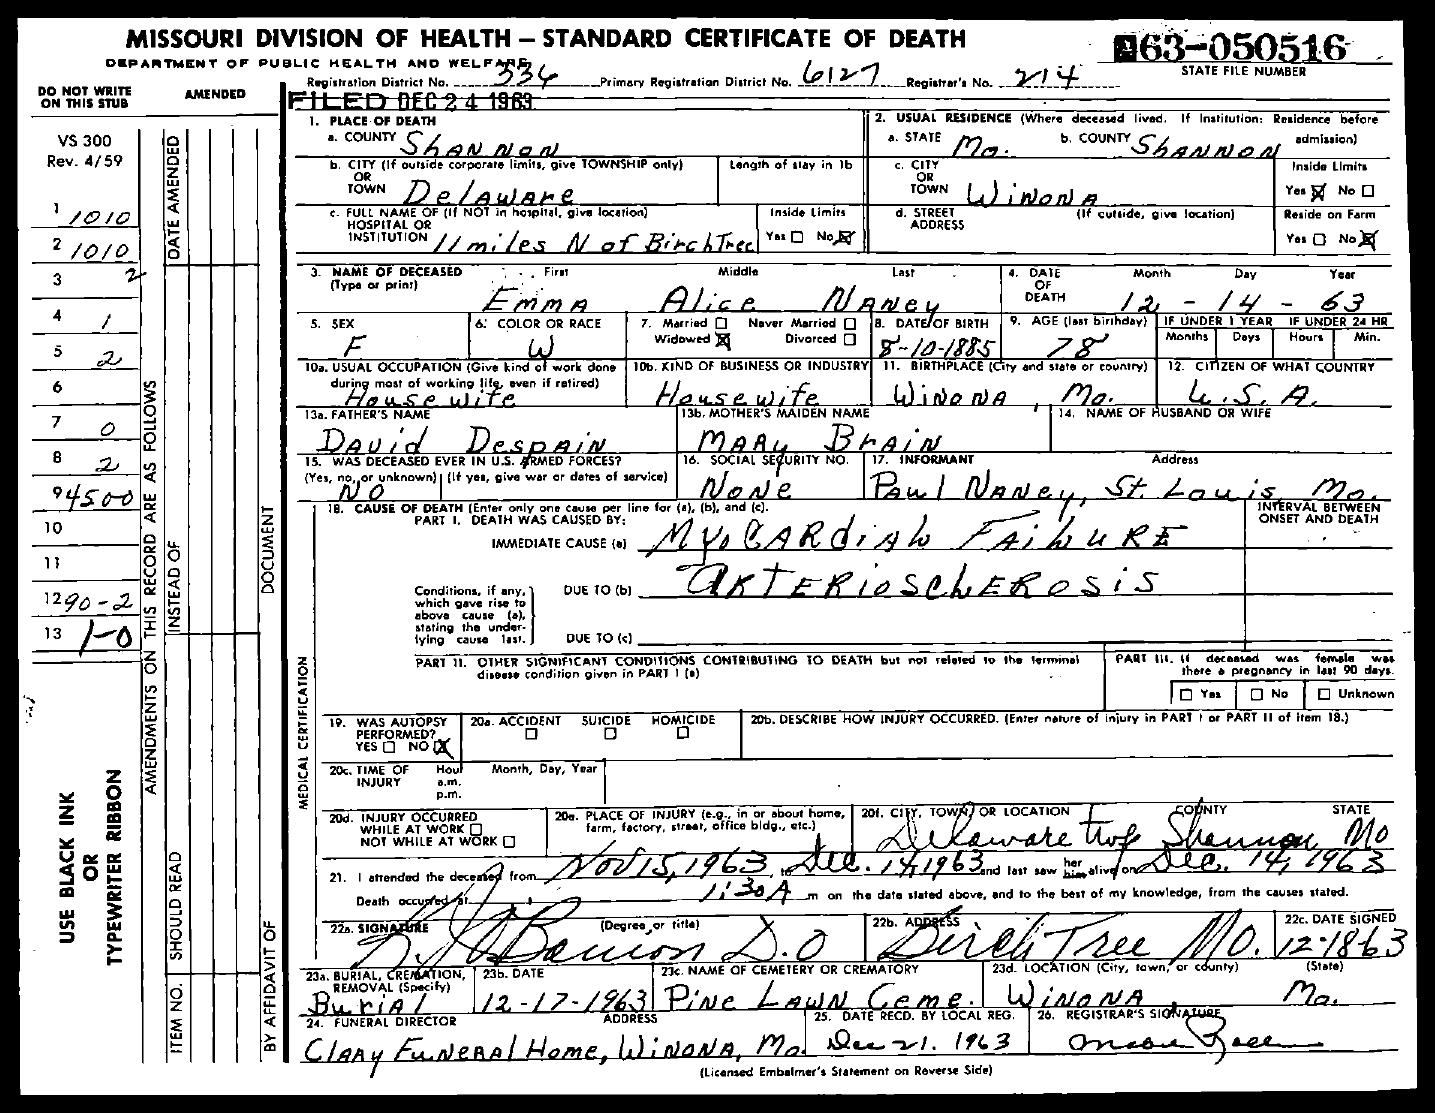 MISSOURI DIVISION OF HEALTH — STANDARD CERTIFICATE OF DEATH
DEPARTMENT OF PUBLIC HEALTH AND WELFARE
63-050516
STATE FILE NUMBER
Registration District No. 336 Primary Registration District No. 6127 Registrar's No. 214
FILED DEC 24 1963
DO NOT WRITE ON THIS STUB
AMENDED
VS 300
Rev. 4/59
1 1010
2 1010
3 2
4 1
5 2
6
7 0
8 2
9 4500
10
11
12 90-2
13 1-0
USE BLACK INK OR TYPEWRITER RIBBON
AMENDMENTS ON THIS RECORD ARE AS FOLLOWS
DATE AMENDED
INSTEAD OF
SHOULD READ
ITEM NO.
DOCUMENT
BY AFFIDAVIT OF
MEDICAL CERTIFICATION
1. PLACE OF DEATH
a. COUNTY Shannon
b. CITY (If outside corporate limits, give TOWNSHIP only) OR TOWN Delaware
Length of stay in 1b
c. FULL NAME OF (If NOT in hospital, give location) HOSPITAL OR INSTITUTION 11 miles N of Birch Tree
Inside Limits Yes No
2. USUAL RESIDENCE (Where deceased lived. If Institution: Residence before admission)
a. STATE Mo. b. COUNTY Shannon
c. CITY OR TOWN Winona
Inside Limits Yes No
d. STREET ADDRESS (If outside, give location)
Reside on Farm Yes No
3. NAME OF DECEASED (Type or print) First Middle Last
Emma Alice Naney
4. DATE OF DEATH Month Day Year
12 - 14 - 63
5. SEX F
6. COLOR OR RACE W
7. Married Never Married Widowed Divorced
8. DATE OF BIRTH 8-10-1885
9. AGE (last birthday) 78
IF UNDER 1 YEAR Months Days
IF UNDER 24 HR Hours Min.
10a. USUAL OCCUPATION (Give kind of work done during most of working life, even if retired) Housewife
10b. KIND OF BUSINESS OR INDUSTRY Housewife
11. BIRTHPLACE (City and state or country) Winona, Mo.
12. CITIZEN OF WHAT COUNTRY U.S.A.
13a. FATHER'S NAME David Despain
13b. MOTHER'S MAIDEN NAME Mary Brain
14. NAME OF HUSBAND OR WIFE
15. WAS DECEASED EVER IN U.S. ARMED FORCES? (Yes, no, or unknown) (If yes, give war or dates of service) No
16. SOCIAL SECURITY NO. None
17. INFORMANT Address Paul Naney, St. Louis, Mo.
18. CAUSE OF DEATH (Enter only one cause per line for (a), (b), and (c).
PART I. DEATH WAS CAUSED BY:
INTERVAL BETWEEN ONSET AND DEATH
IMMEDIATE CAUSE (a) Myocardial Failure
Conditions, if any, which gave rise to above cause (a), stating the underlying cause last.
DUE TO (b) Arteriosclerosis
DUE TO (c)
PART II. OTHER SIGNIFICANT CONDITIONS CONTRIBUTING TO DEATH but not related to the terminal disease condition given in PART I (a)
PART III. If deceased was female was there a pregnancy in last 90 days.
Yes No Unknown
19. WAS AUTOPSY PERFORMED? YES NO
20a. ACCIDENT SUICIDE HOMICIDE
20b. DESCRIBE HOW INJURY OCCURRED. (Enter nature of injury in PART I or PART II of item 18.)
20c. TIME OF INJURY Hour a.m. p.m. Month, Day, Year
20d. INJURY OCCURRED WHILE AT WORK NOT WHILE AT WORK
20e. PLACE OF INJURY (e.g., in or about home, farm, factory, street, office bldg., etc.)
20f. CITY, TOWN, OR LOCATION COUNTY STATE
Delaware twp Shannon Mo
21. I attended the deceased from Nov 15, 1963, to Dec. 14, 1963 and last saw her him alive on Dec. 14, 1963
Death occurred at 1:30 A m on the date stated above, and to the best of my knowledge, from the causes stated.
22a. SIGNATURE (Degree or title) D.O
22b. ADDRESS Birch Tree Mo.
22c. DATE SIGNED 12-18-63
23a. BURIAL, CREMATION, REMOVAL (Specify) Burial
23b. DATE 12-17-1963
23c. NAME OF CEMETERY OR CREMATORY Pine Lawn Ceme.
23d. LOCATION (City, town, or county) (State) Winona, Mo.
24. FUNERAL DIRECTOR ADDRESS Clary Funeral Home, Winona, Mo.
25. DATE RECD. BY LOCAL REG. Dec 21. 1963
26. REGISTRAR'S SIGNATURE
(Licensed Embalmer's Statement on Reverse Side)